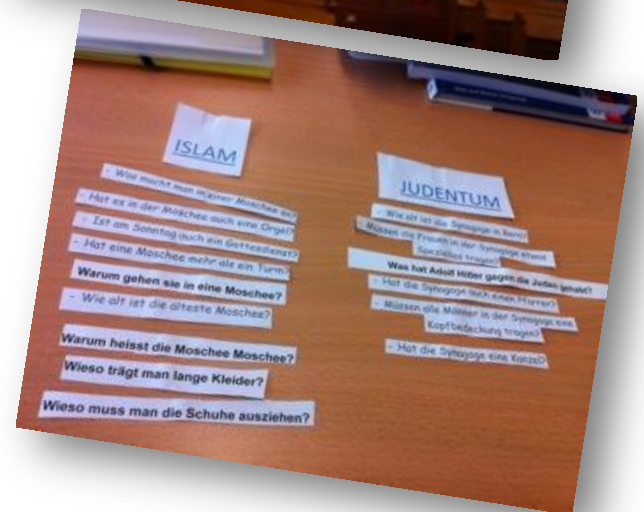 ISLAM
- Was macht man in einer Moschee
- Hat es in der Moschee auch eine Orgel?
- Ist am Sonntag auch ein Gottesdienst?
- Hat eine Moschee mehr als ein Turm?
Warum gehen sie in eine Moschee?
- Wie alt ist die älteste Moschee?
Warum heisst die Moschee Moschee?
Wieso trägt man lange Kleider?
Wieso muss man die Schuhe ausziehen?
JUDENTUM
- Wie alt ist die Synagoge in Bern?
- Müssen die Frauen in der Synagoge etwas
Spezielles tragen?
Was hat Adolf Hitler gegen die Juden gehabt?
- Hat die Synagoge auch einen Pfarrer?
- Müssen alle Männer in der Synagoge eine
Kopfbedeckung tragen?
- Hat die Synagoge eine Kanzel?